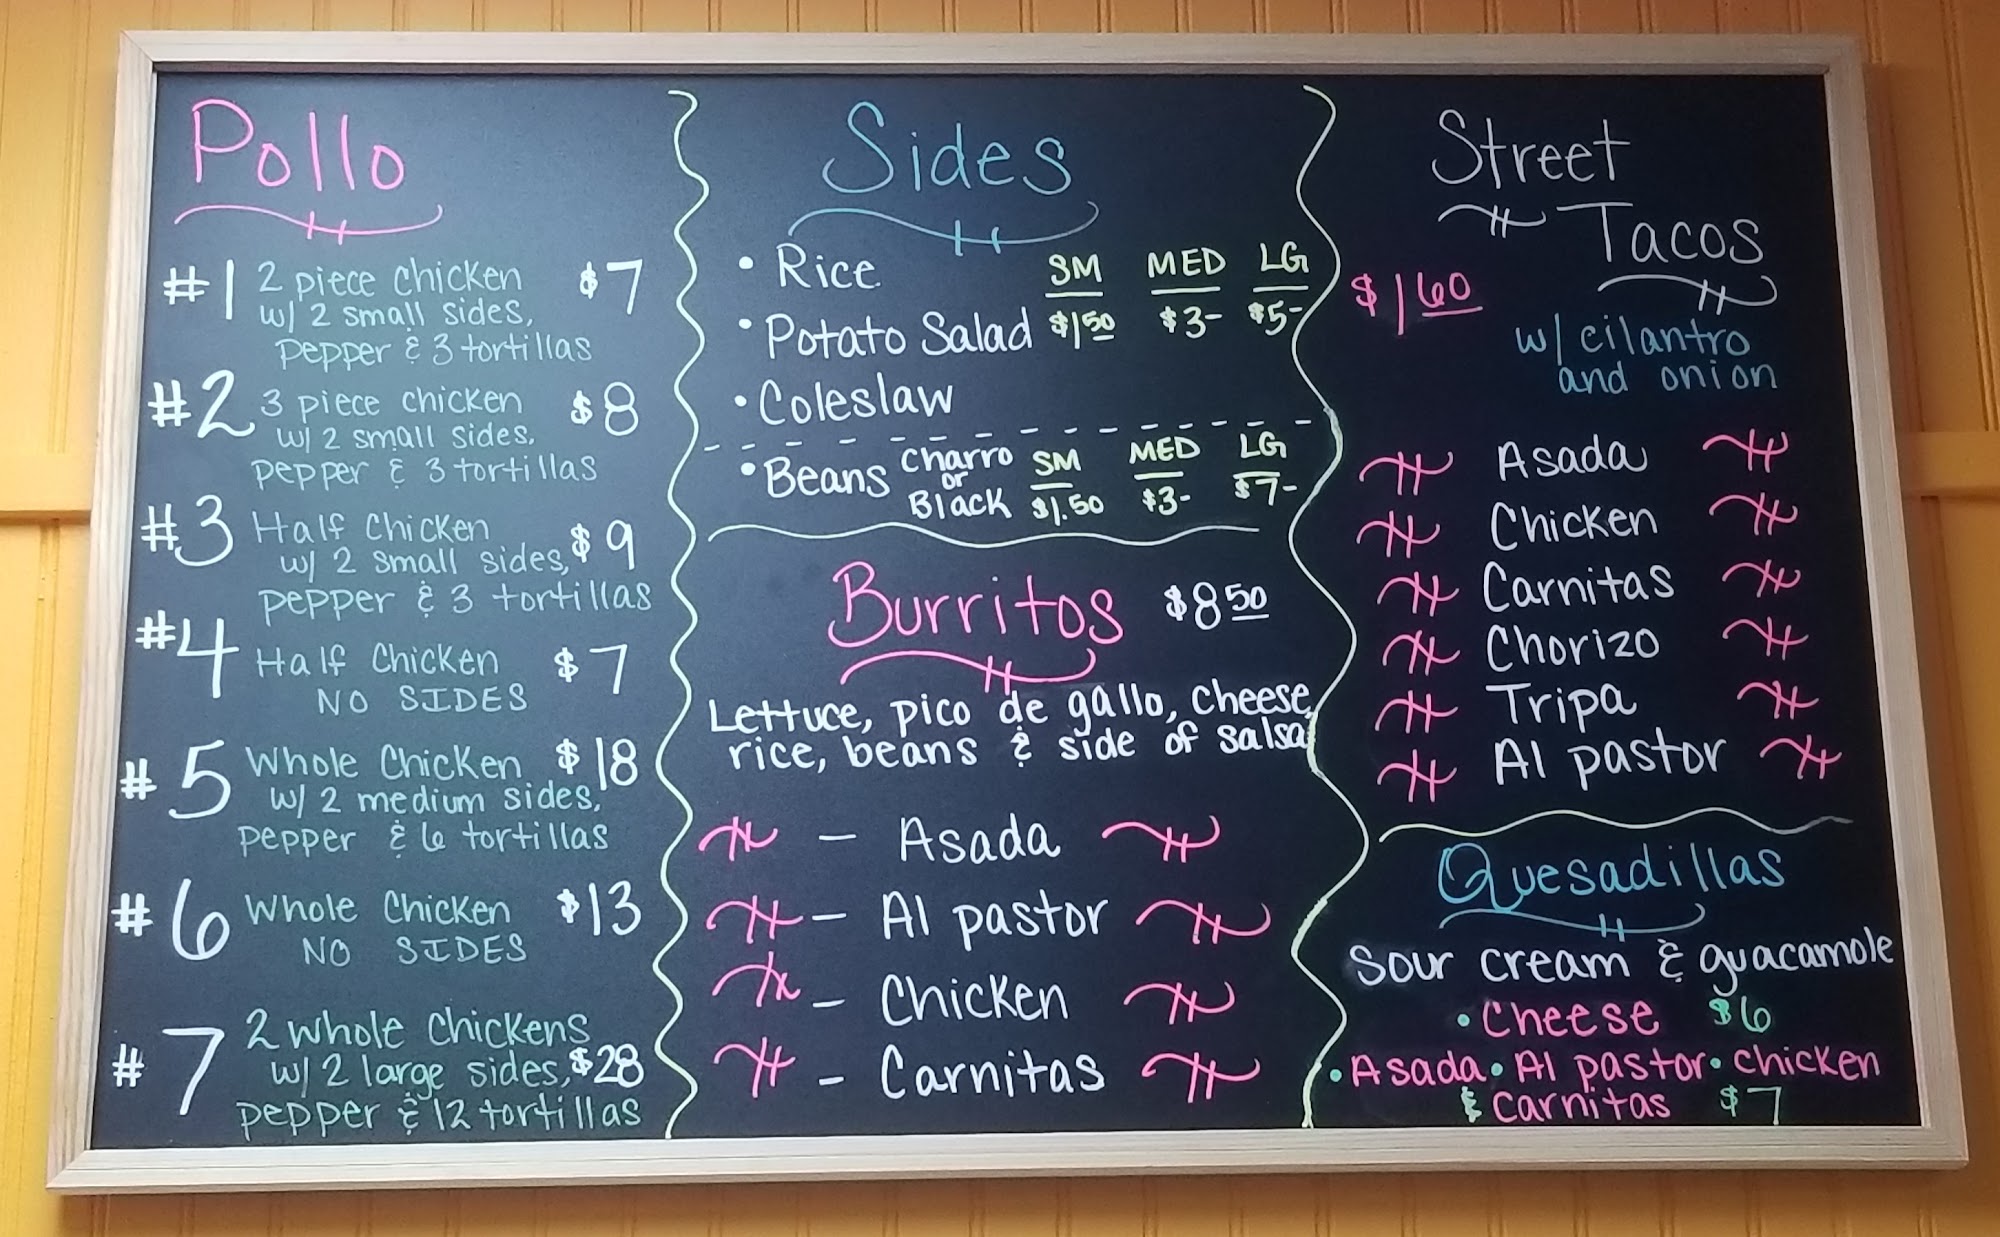 Pollo
#1 2 piece chicken $7
w/ 2 small sides,
pepper & 3 tortillas
#2 3 piece chicken $8
w/ 2 small sides,
pepper & 3 tortillas
#3 Half Chicken $9
w/ 2 small sides,
pepper & 3 tortillas
#4 Half Chicken $7
NO SIDES
#5 Whole Chicken $18
w/ 2 medium sides,
pepper & 6 tortillas
#6 Whole Chicken $13
NO SIDES
#7 2 whole chickens
w/ 2 large sides, $28
pepper & 12 tortillas
Sides
• Rice SM MED LG
• Potato Salad $1.50 $3- $5-
• Coleslaw
• Beans Charro or Black SM MED LG
$1.50 $3- $7-
Burritos $8.50
Lettuce, pico de gallo, cheese,
rice, beans & side of salsa
- Asada
- Al pastor
- Chicken
- Carnitas
Street
Tacos
$1.60
w/ cilantro
and onion
Asada
Chicken
Carnitas
Chorizo
Tripa
Al pastor
Quesadillas
Sour cream & guacamole
• Cheese $6
• Asada • Al pastor • chicken
& carnitas $7